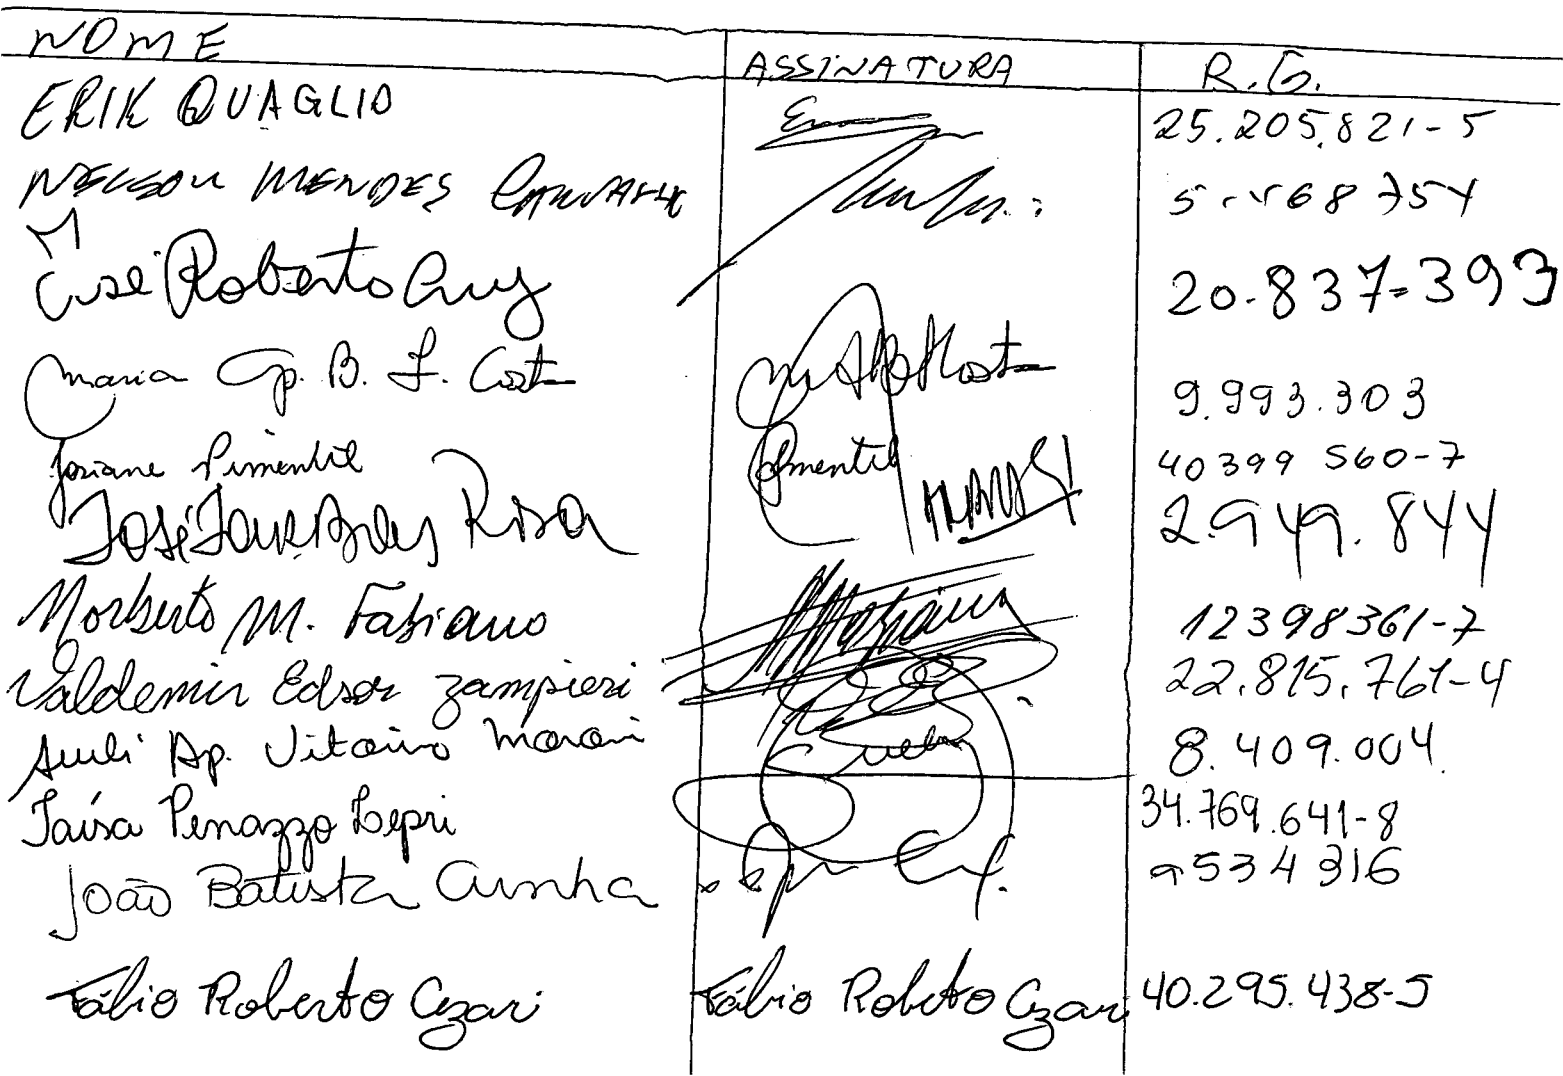 NOME ASSINATURA R.G.
ERIK QUAGLIO 25.205.821-5
NELSON MENDES CARVALHO
José Roberto Cruz 20.837-393
Maria Ap. B. F. Costa 9.993.303
Josiane Pimentel Pimentel 40399 560-7
José 2.949.844
Norberto M. Fabiano 12398361-7
Valdemir Edson Zampieri 22.815.761-4
Sueli Ap. Vitorino Sueli 8.409.004
Taísa Penazzo Lepri 34.769.641-8
João Batista Cunha 9534316
Fábio Roberto Cezari Fábio Roberto Cezari 40.295.438-5